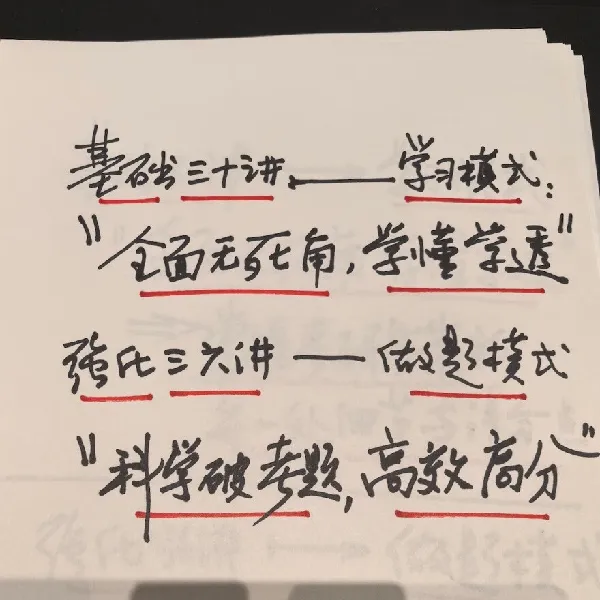 基础三十讲——学习模式:
"全面无死角,学懂学透"
强化三六讲——做题模式
"科学破考题,高效高分"